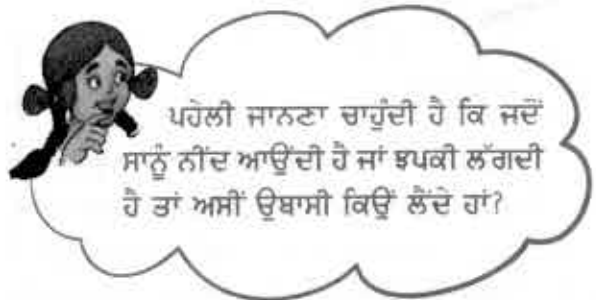 ਪਹੇਲੀ ਜਾਨਣਾ ਚਾਹੁੰਦੀ ਹੈ ਕਿ ਜਦੋਂ
ਸਾਨੂੰ ਨੀਂਦ ਆਉਂਦੀ ਹੈ ਜਾਂ ਝਪਕੀ ਲੱਗਦੀ
ਹੈ ਤਾਂ ਅਸੀਂ ਉਬਾਸੀ ਕਿਉਂ ਲੈਂਦੇ ਹਾਂ?